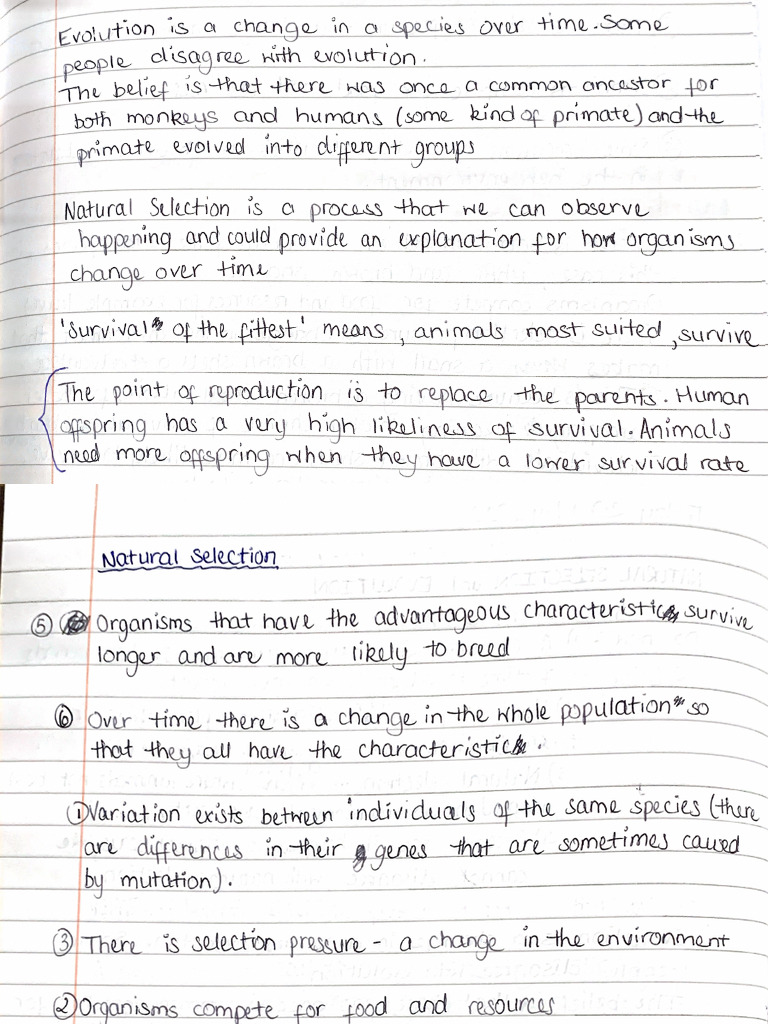 Evolution is a change in a species over time. Some
people disagree with evolution.
The belief is that there was once a common ancestor for
both monkeys and humans (some kind of primate) and the
primate evolved into different groups
Natural Selection is a process that we can observe
happening and could provide an explanation for how organisms
change over time
'Survival of the fittest' means, animals most suited, survive
The point of reproduction is to replace the parents. Human
offspring has a very high likeliness of survival. Animals
need more offspring when they have a lower survival rate
Natural Selection
⑤ Organisms that have the advantageous characteristic survive
longer and are more likely to breed
⑥ Over time there is a change in the whole population so
that they all have the characteristic.
① Variation exists between individuals of the same species (there
are differences in their genes that are sometimes caused
by mutation).
③ There is selection pressure - a change in the environment
② Organisms compete for food and resources